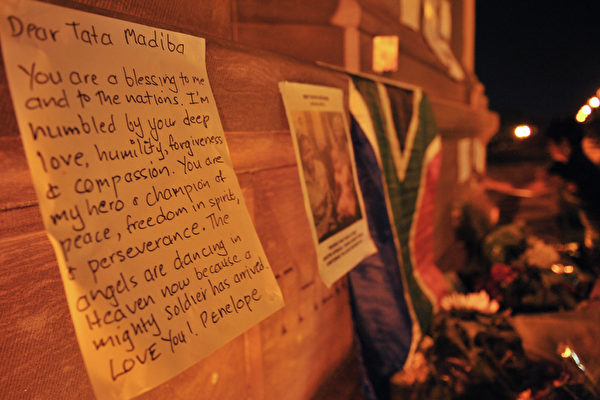 Dear Tata Madiba
You are a blessing to me
and to the nations. I'm
humbled by your deep
love, humility, forgiveness
& compassion. You are
my hero & champion of
peace, freedom in spirit,
& perseverance. The
angels are dancing in
Heaven now because a
mighty soldier has arrived.
LOVE You! Penelope